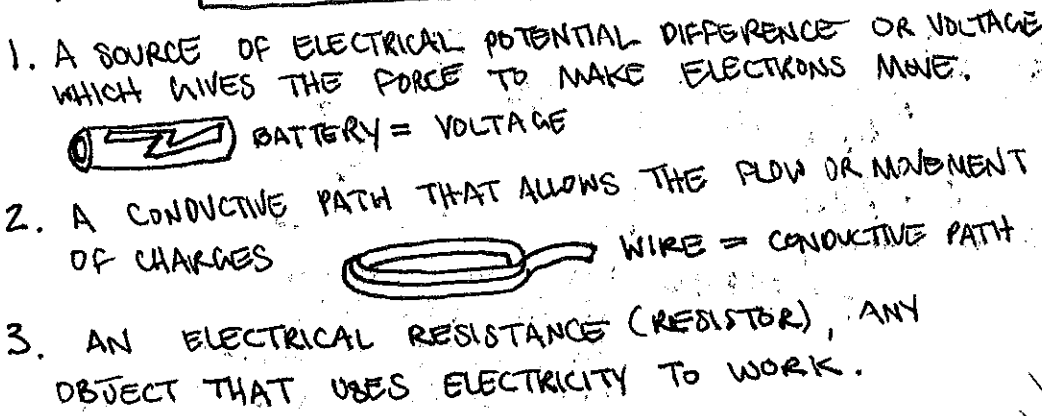 1. A SOURCE OF ELECTRICAL POTENTIAL DIFFERENCE OR VOLTAGE
WHICH GIVES THE FORCE TO MAKE ELECTRONS MOVE.
BATTERY = VOLTAGE
2. A CONDUCTIVE PATH THAT ALLOWS THE FLOW OR MOVEMENT
OF CHARGES
WIRE = CONDUCTIVE PATH
3. AN ELECTRICAL RESISTANCE (RESISTOR), ANY
OBJECT THAT USES ELECTRICITY TO WORK.